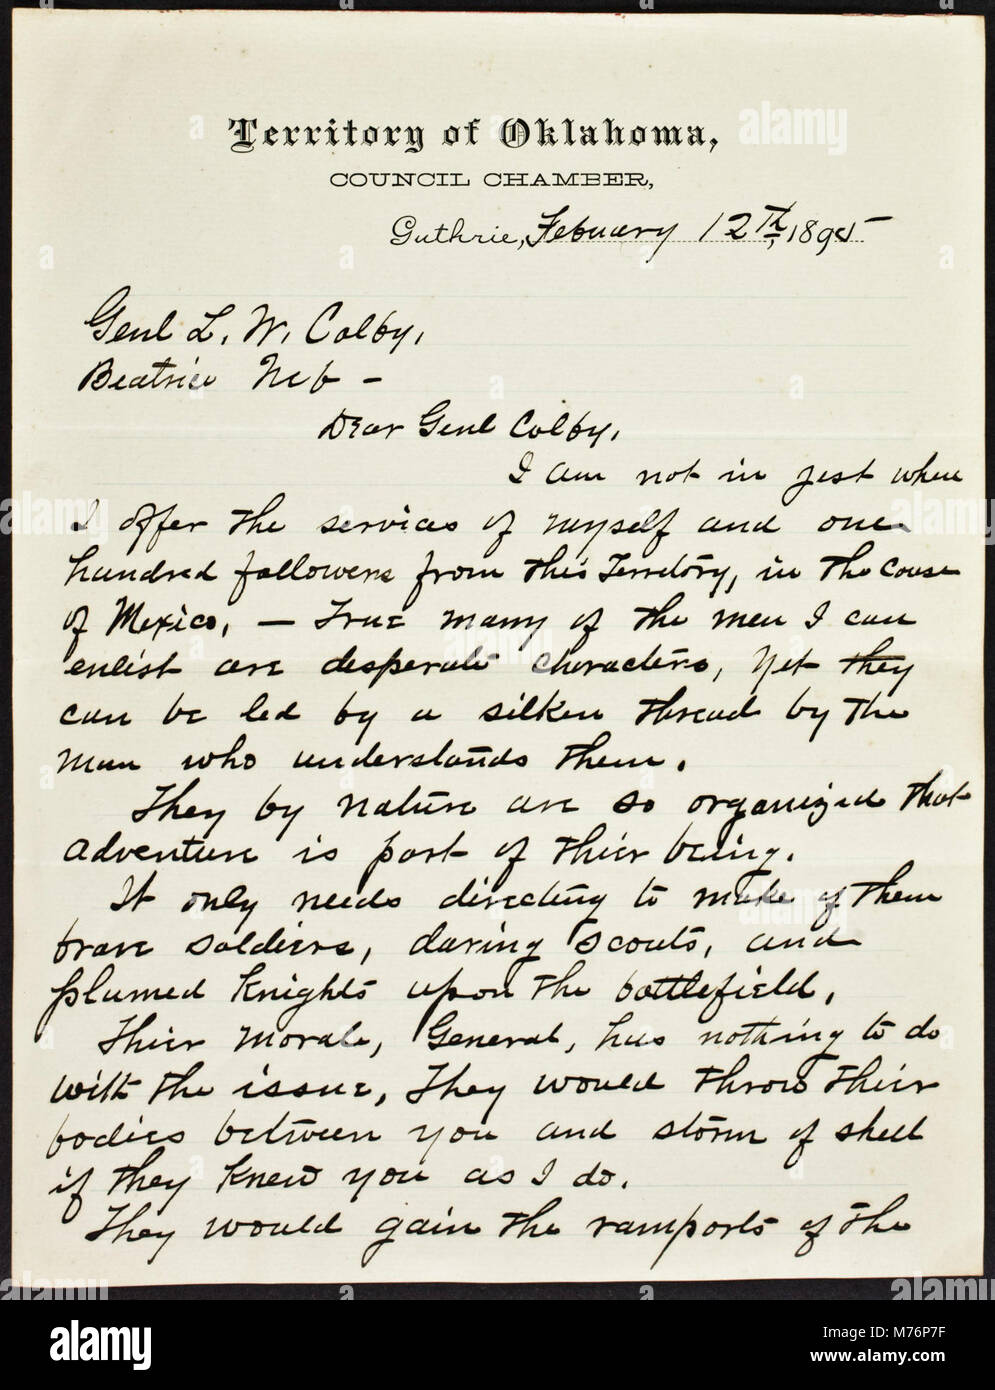 Territory of Oklahoma,
COUNCIL CHAMBER,
Guthrie, Febuary 12Th, 1895
Genl L. W. Colby,
Beatrice Neb –
Dear Genl Colby,
I am not in jest when
I offer the services of myself and one
hundred followers from this Territory, in the cause
of Mexico, — True many of the men I can
enlist are desperate characters, yet they
can be led by a silken thread by the
man who understands them.
They by nature are so organized that
adventure is part of thier being.
It only needs directing to make of them
brave soldiers, daring scouts, and
plumed Knights upon the battlefield,
Thier morale, General, has nothing to do
with the issue, They would throw thier
bodies between you and storm of shell
if they knew you as I do.
They would gain the ramports of the
alamy
M76P7F
www.alamy.com